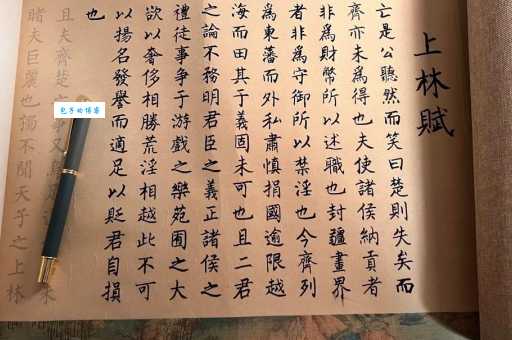 上林賦
亡是公聽然而笑曰楚則失矣而
齊亦未為得也夫使諸侯納貢者
非為財幣所以述職也封疆畫界
者非為守御所以禁淫也今齊列
為東藩而外私肅慎捐國逾限越
海而田其于義固未可也且二君
之論不務明君臣之義正諸侯之
禮徒事爭于游戲之樂苑囿之大
欲以奢侈相勝荒淫相越此不可
以揚名發譽而適足以貶君自損
也
且夫齊楚事又烏足未
睹夫巨麗也獨不聞天子之上林